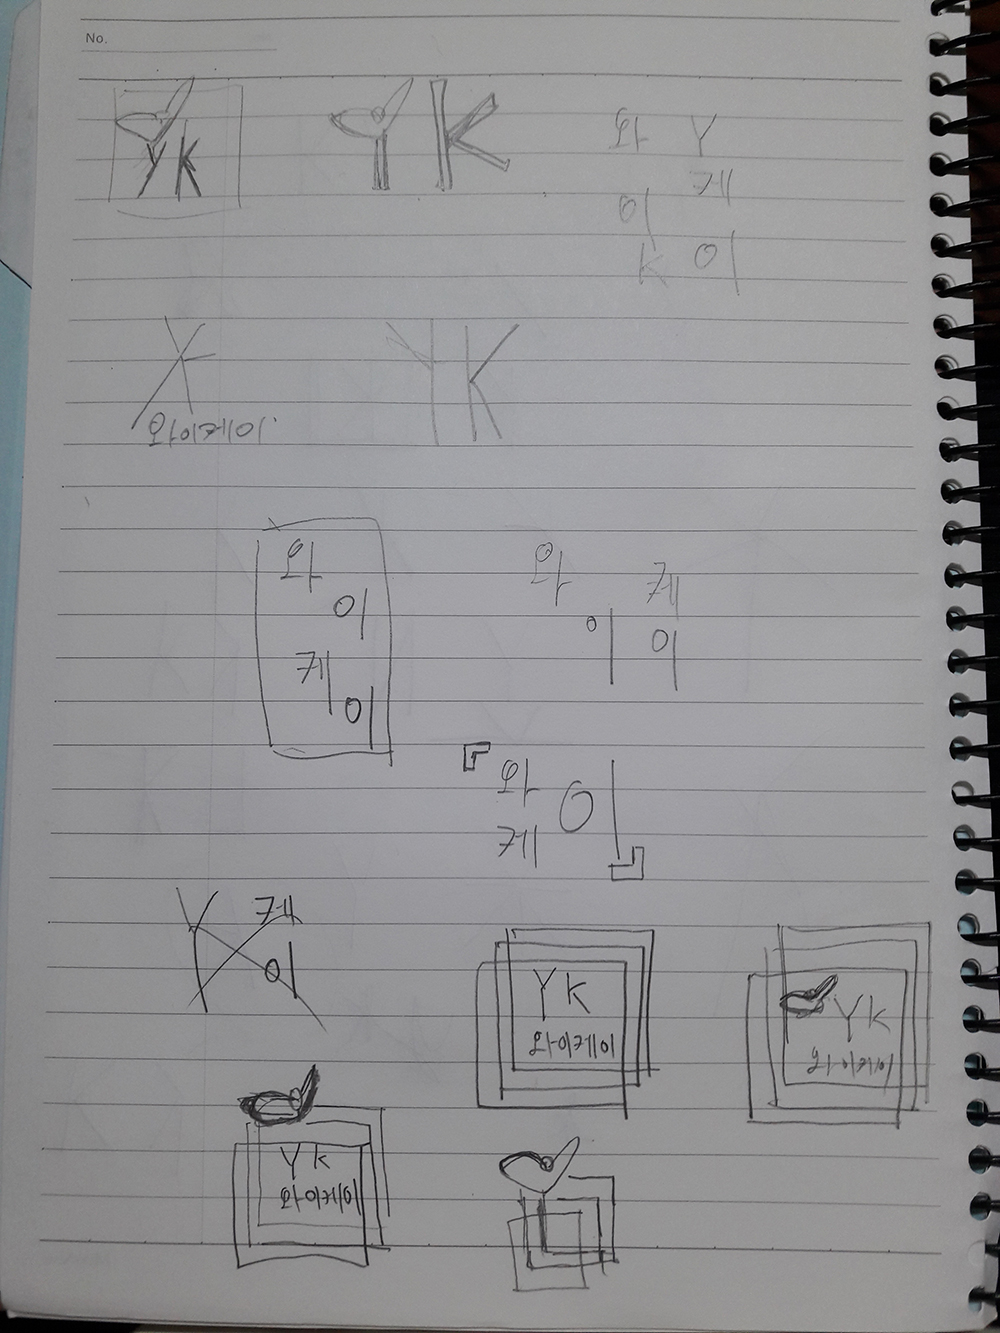 No.
YK
YK
와 Y
케
이
K 이
와이케이.
YK
와
이
케
이
와 케
이 이
와
케 이
Y 케
이
YK
와이케이
YK
와이케이
YK
와이케이